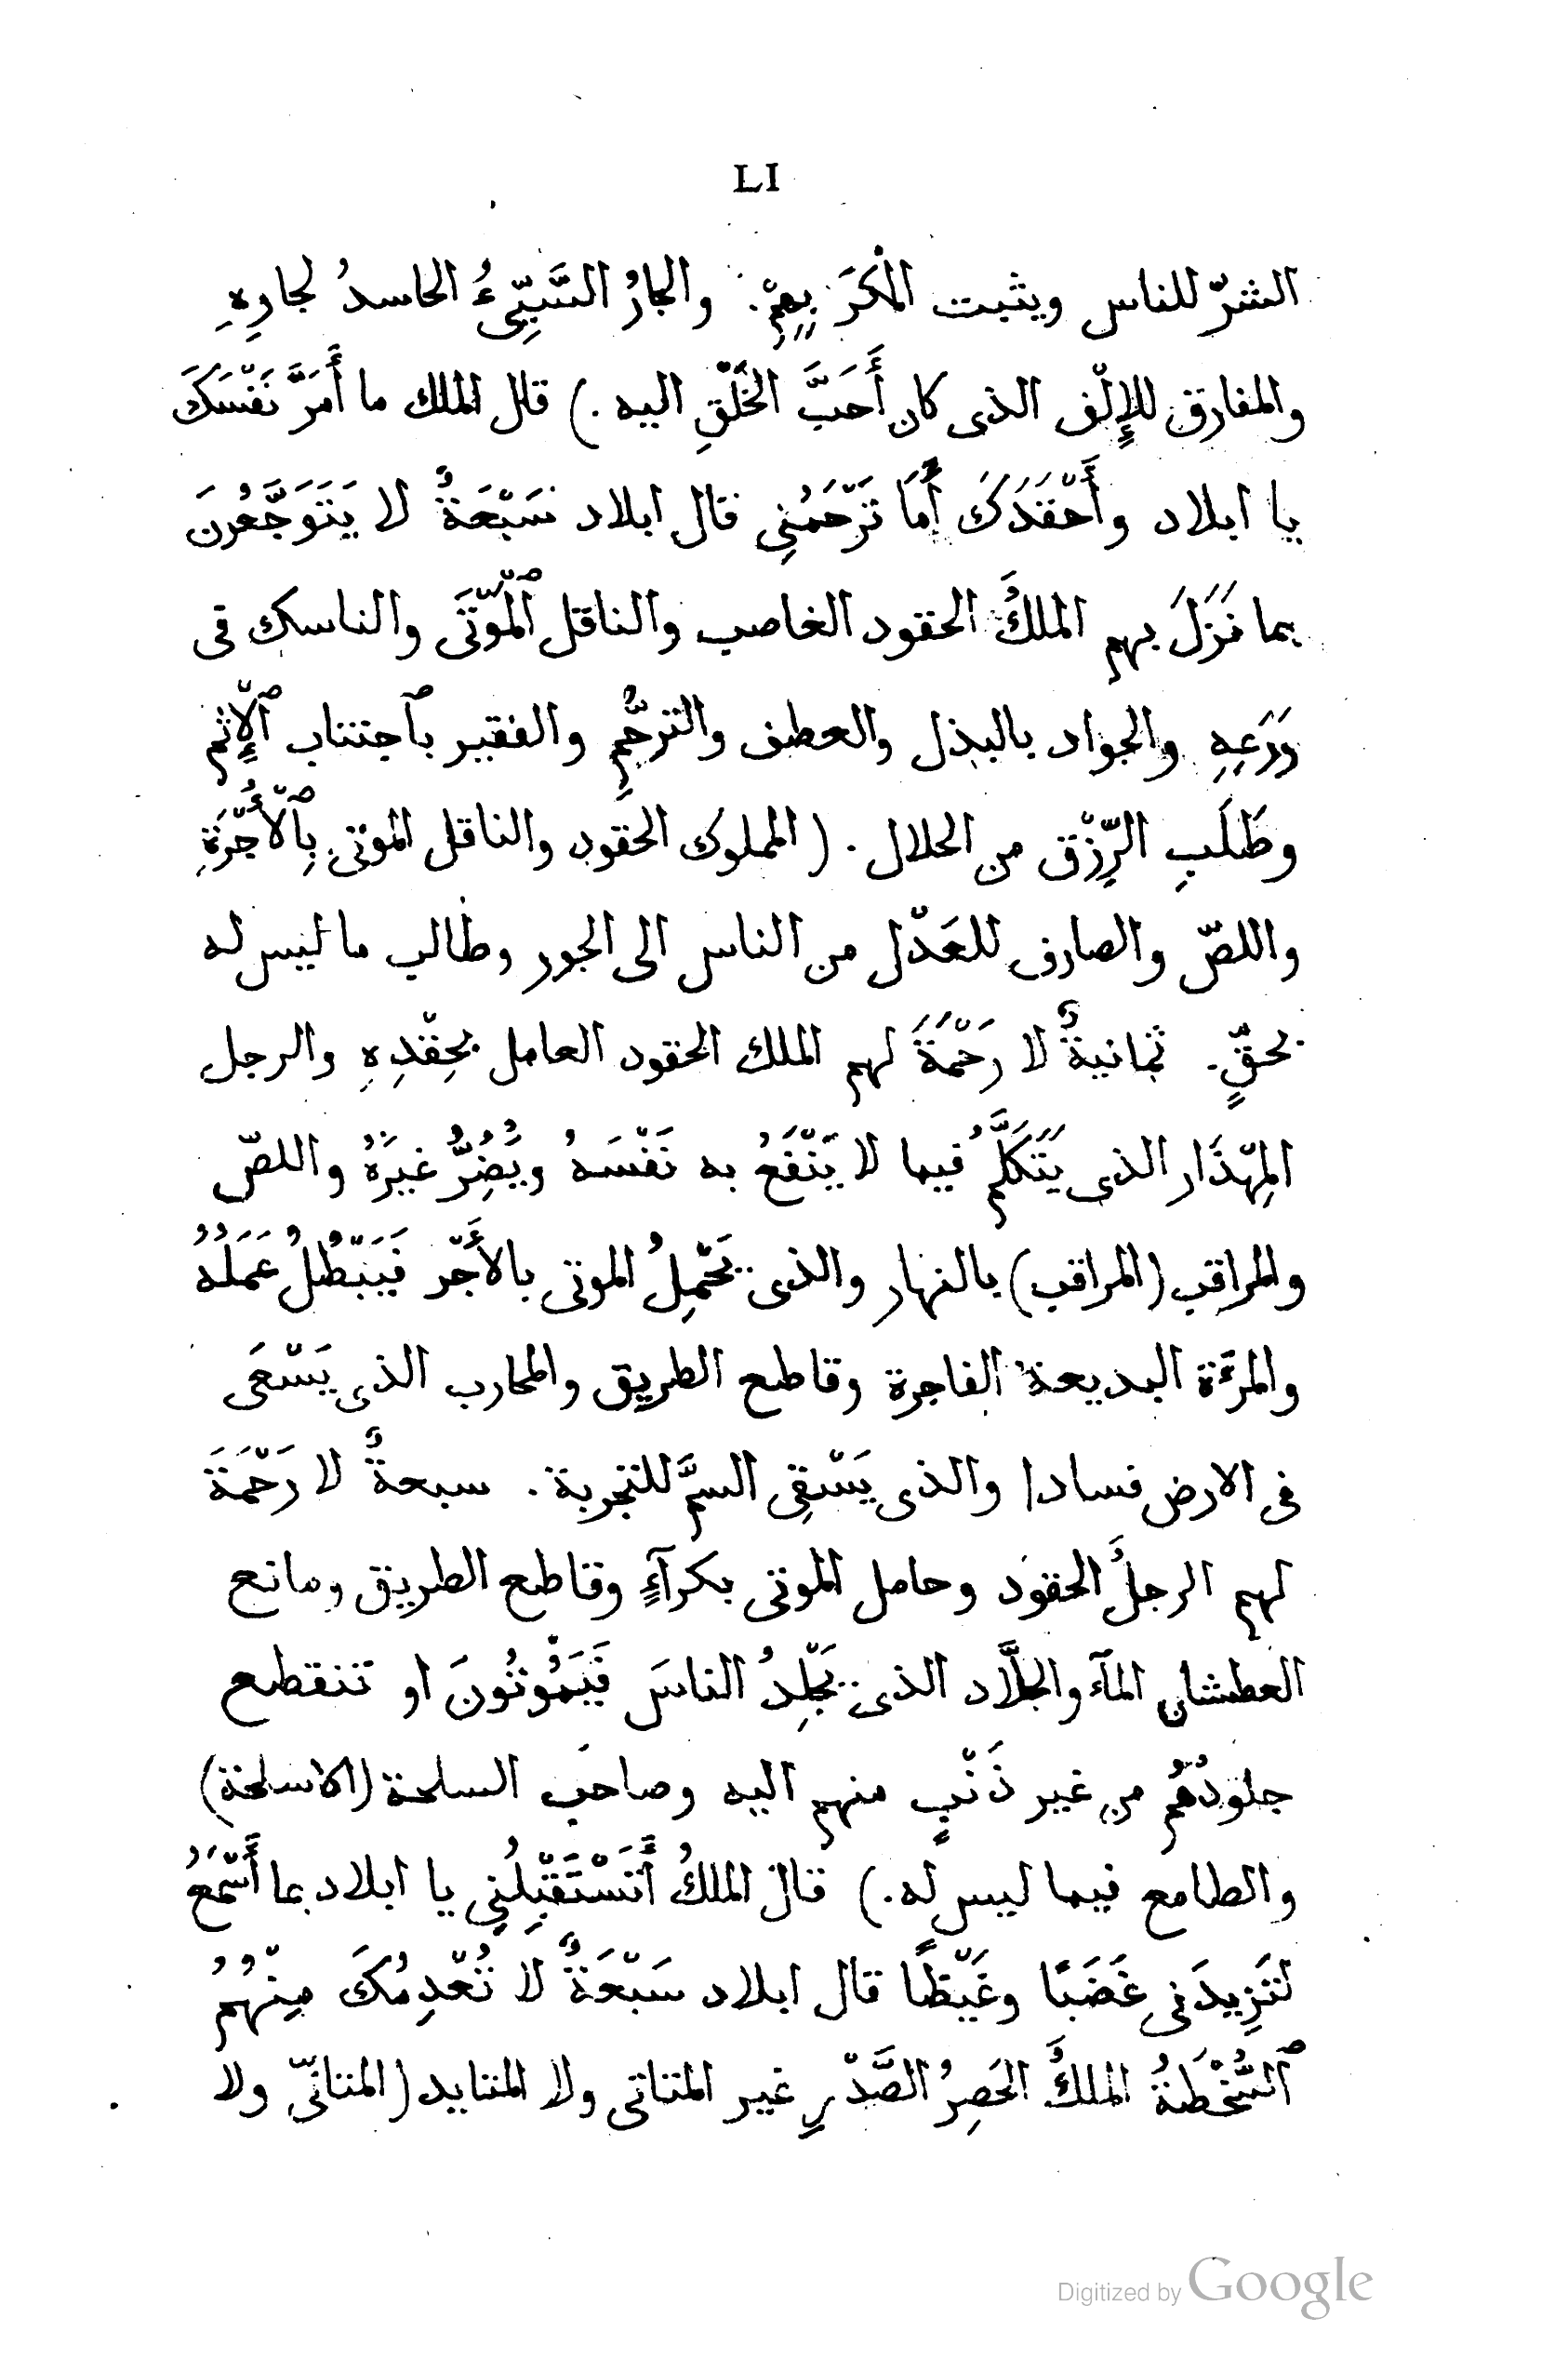 LI
الشرّ للناس ويثبت المْكرَ بِهِمْ. والجارُ السَّيِّىءُ الحاسدُ لجارِهِ
والمفارق للإِلْف الذى كان أَحَبَّ الخَلْقِ اليه .) قال الملك ما أَمَرَّ نَفْسَكَ
يا ابلاد وأَحْقَدَكَ أَمَا تَرْحَمُنِى قال ابلاد سَبْعَةٌ لا يَتَوَجَّعُونَ
بما نَزَلَ بهم الملكُ الحقود الغاصب والناقل ٱلْمَوْتَى والناسك فى
وَرَعِهِ والجواد بالبذل والعطف والترحُّمِ والفقير بٱجتناب ٱلْإِثْم
وطَلَبِ الرِّزْق من الحلال . (المملوك الحقود والناقل الموتى بِٱلْأُجْرَةِ
واللصّ والصارف للعَدْل من الناس الى الجور وطالب ما ليس له
بحقٍّ. ثمانيةٌ لا رَحْمَةَ لهم الملك الحقود العامل بحِقْدِهِ والرجل
المِهْذَار الذى يَتَكَلَّمُ فيما لا يَنْفَعُ به نَفْسَهُ ويُضِرُّ غيرَهُ واللصّ
والمراقِب (المراقب) بالنهار والذى يَحْمِلُ الموتى بالأَجْر فَيَبْطُلُ عَمَلُهُ
والمرءَة البديعة الفاجرة وقاطع الطريق والمحارب الذى يَسْعَى
فى الارض فسادا والذى يَسْقِى السمَّ للتجربة . سبعةٌ لا رَحْمَةَ
لهم الرجلُ الحقود وحامل الموتى بكرآءٍ وقاطع الطريق ومانع
العطشان المآء والجلَّاد الذى يَجْلِدُ الناسَ فَيَمُوتُونَ او تنقطع
جلودُهُم من غير ذَنْبٍ منهم اليه وصاحب السلحة (الاسلحة)
والطامع فيما ليس له.) قال الملكُ أَتَسْتَقْبِلُنِى يا ابلاد بما أَسْمَعُ
لتَزِيدَنى غَضَبًا وغَيْظًا قال ابلاد سَبْعَةٌ لا تُعْدِمُكَ مِنْهُمُ
ٱلسُّخْطَةُ الملكُ الحَصِرُ الصَّدْرِ غير المتاتى ولا المتايد (المتانّى ولا
Digitized by Google